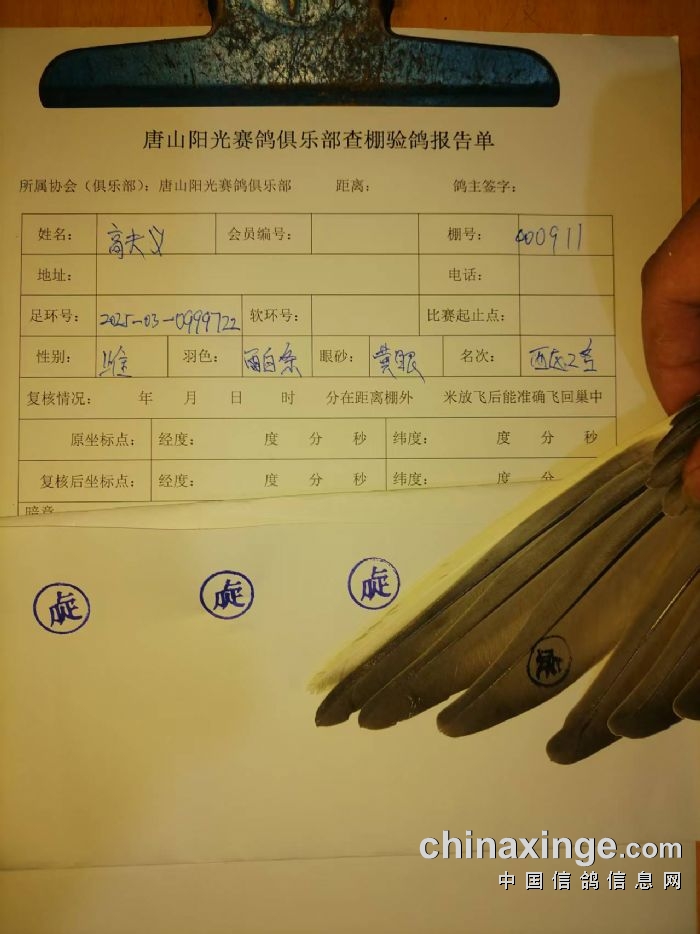 唐山阳光赛鸽俱乐部查棚验鸽报告单
所属协会（俱乐部）：唐山阳光赛鸽俱乐部 距离： 鸽主签字：
姓名： 高夫义 会员编号： 棚号： 400911
地址： 电话：
足环号： 2025-03-0999722 软环号： 比赛起止点：
性别： 雌 羽色： 雨白条 眼砂： 黄眼 名次：
复核情况： 年 月 日 时 分在距离棚外 米放飞后能准确飞回巢中
原坐标点： 经度： 度 分 秒 纬度： 度 分 秒
复核后坐标点： 经度： 度 分 秒 纬度： 度 分
chinaxinge.com
中国信鸽信息网